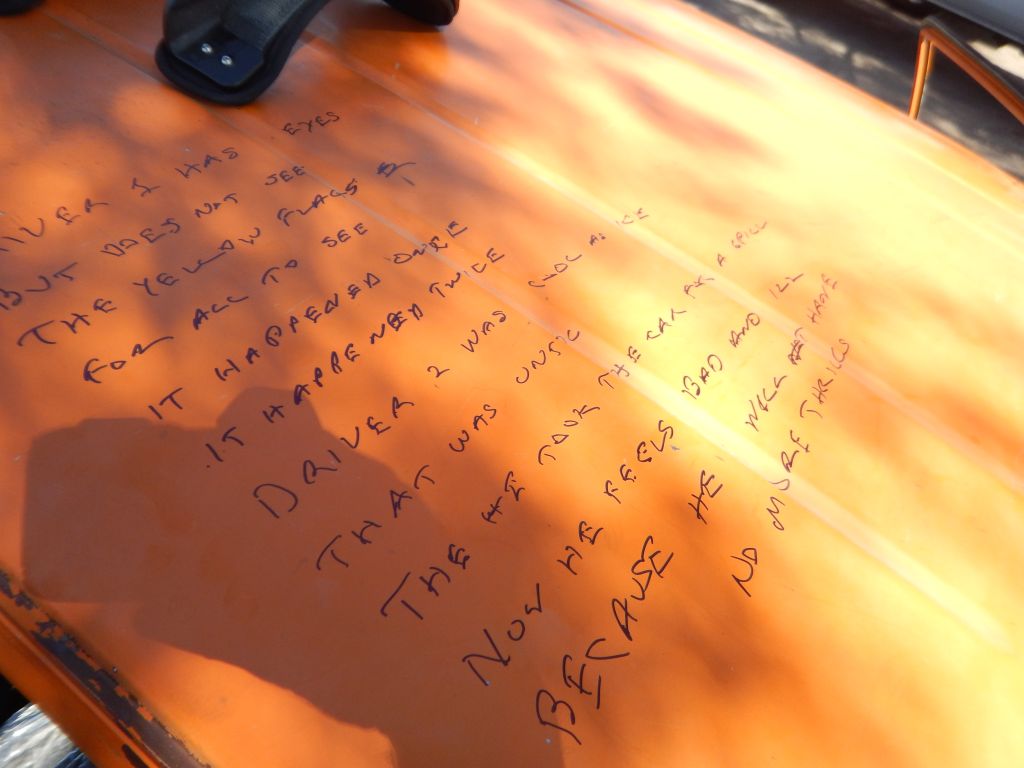 DRIVER 1 HAS EYES
BUT DOES NOT SEE
THE YELLOW FLAGS
FOR ALL TO SEE
IT HAPPENED ONCE
IT HAPPENED TWICE
DRIVER 2 WAS COOL AS ICE
THAT WAS UNTIL
THE HE TOOK THE CAR FOR A SPILL
NOW HE FEELS BAD AND ILL
BECAUSE HE WILL HAVE
NO MORE THRILLS